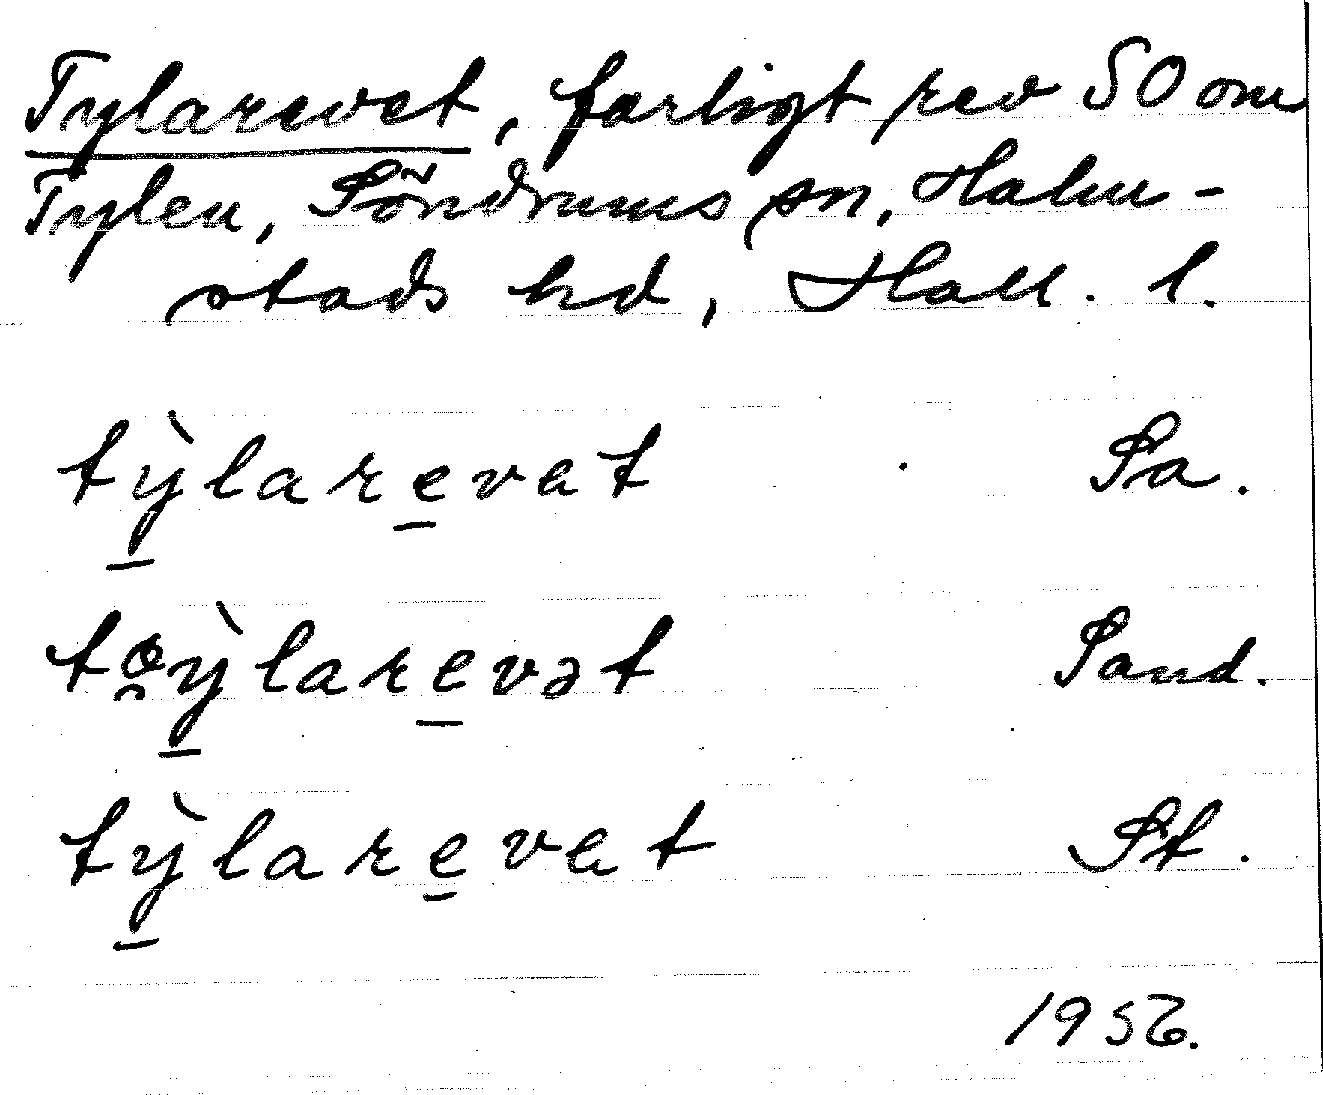 Tylarevet, farligt rev SO om
Tylen, Söndrums sn, Halm-
stads hd, Hall. l.
tỳ̲lare̲vat Sa.
to̯ỳ̲lare̲vət Sand.
tỳ̲lare̲vat St.